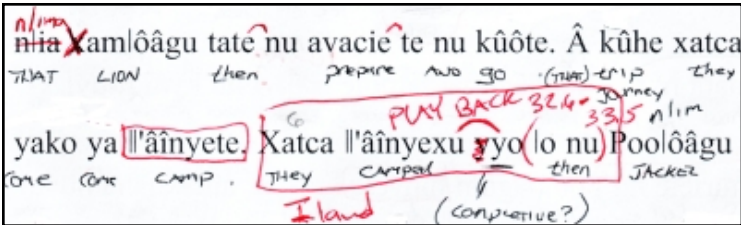 n/ima
nǀia Xamǀôâgu tate nu avacie te nu kûôte. Â kûhe xatca
THAT LION then prepare AND go (THAT) trip they
PLAY BACK 32.6 - journey
33.5 n/im
yako ya ǁ'âînyete. Xatca ǁ'âînyexu yyo (ǀo nu) Pooǀôâgu
come come CAMP. THEY CAMPED then JACKEL
Iland (completive?)